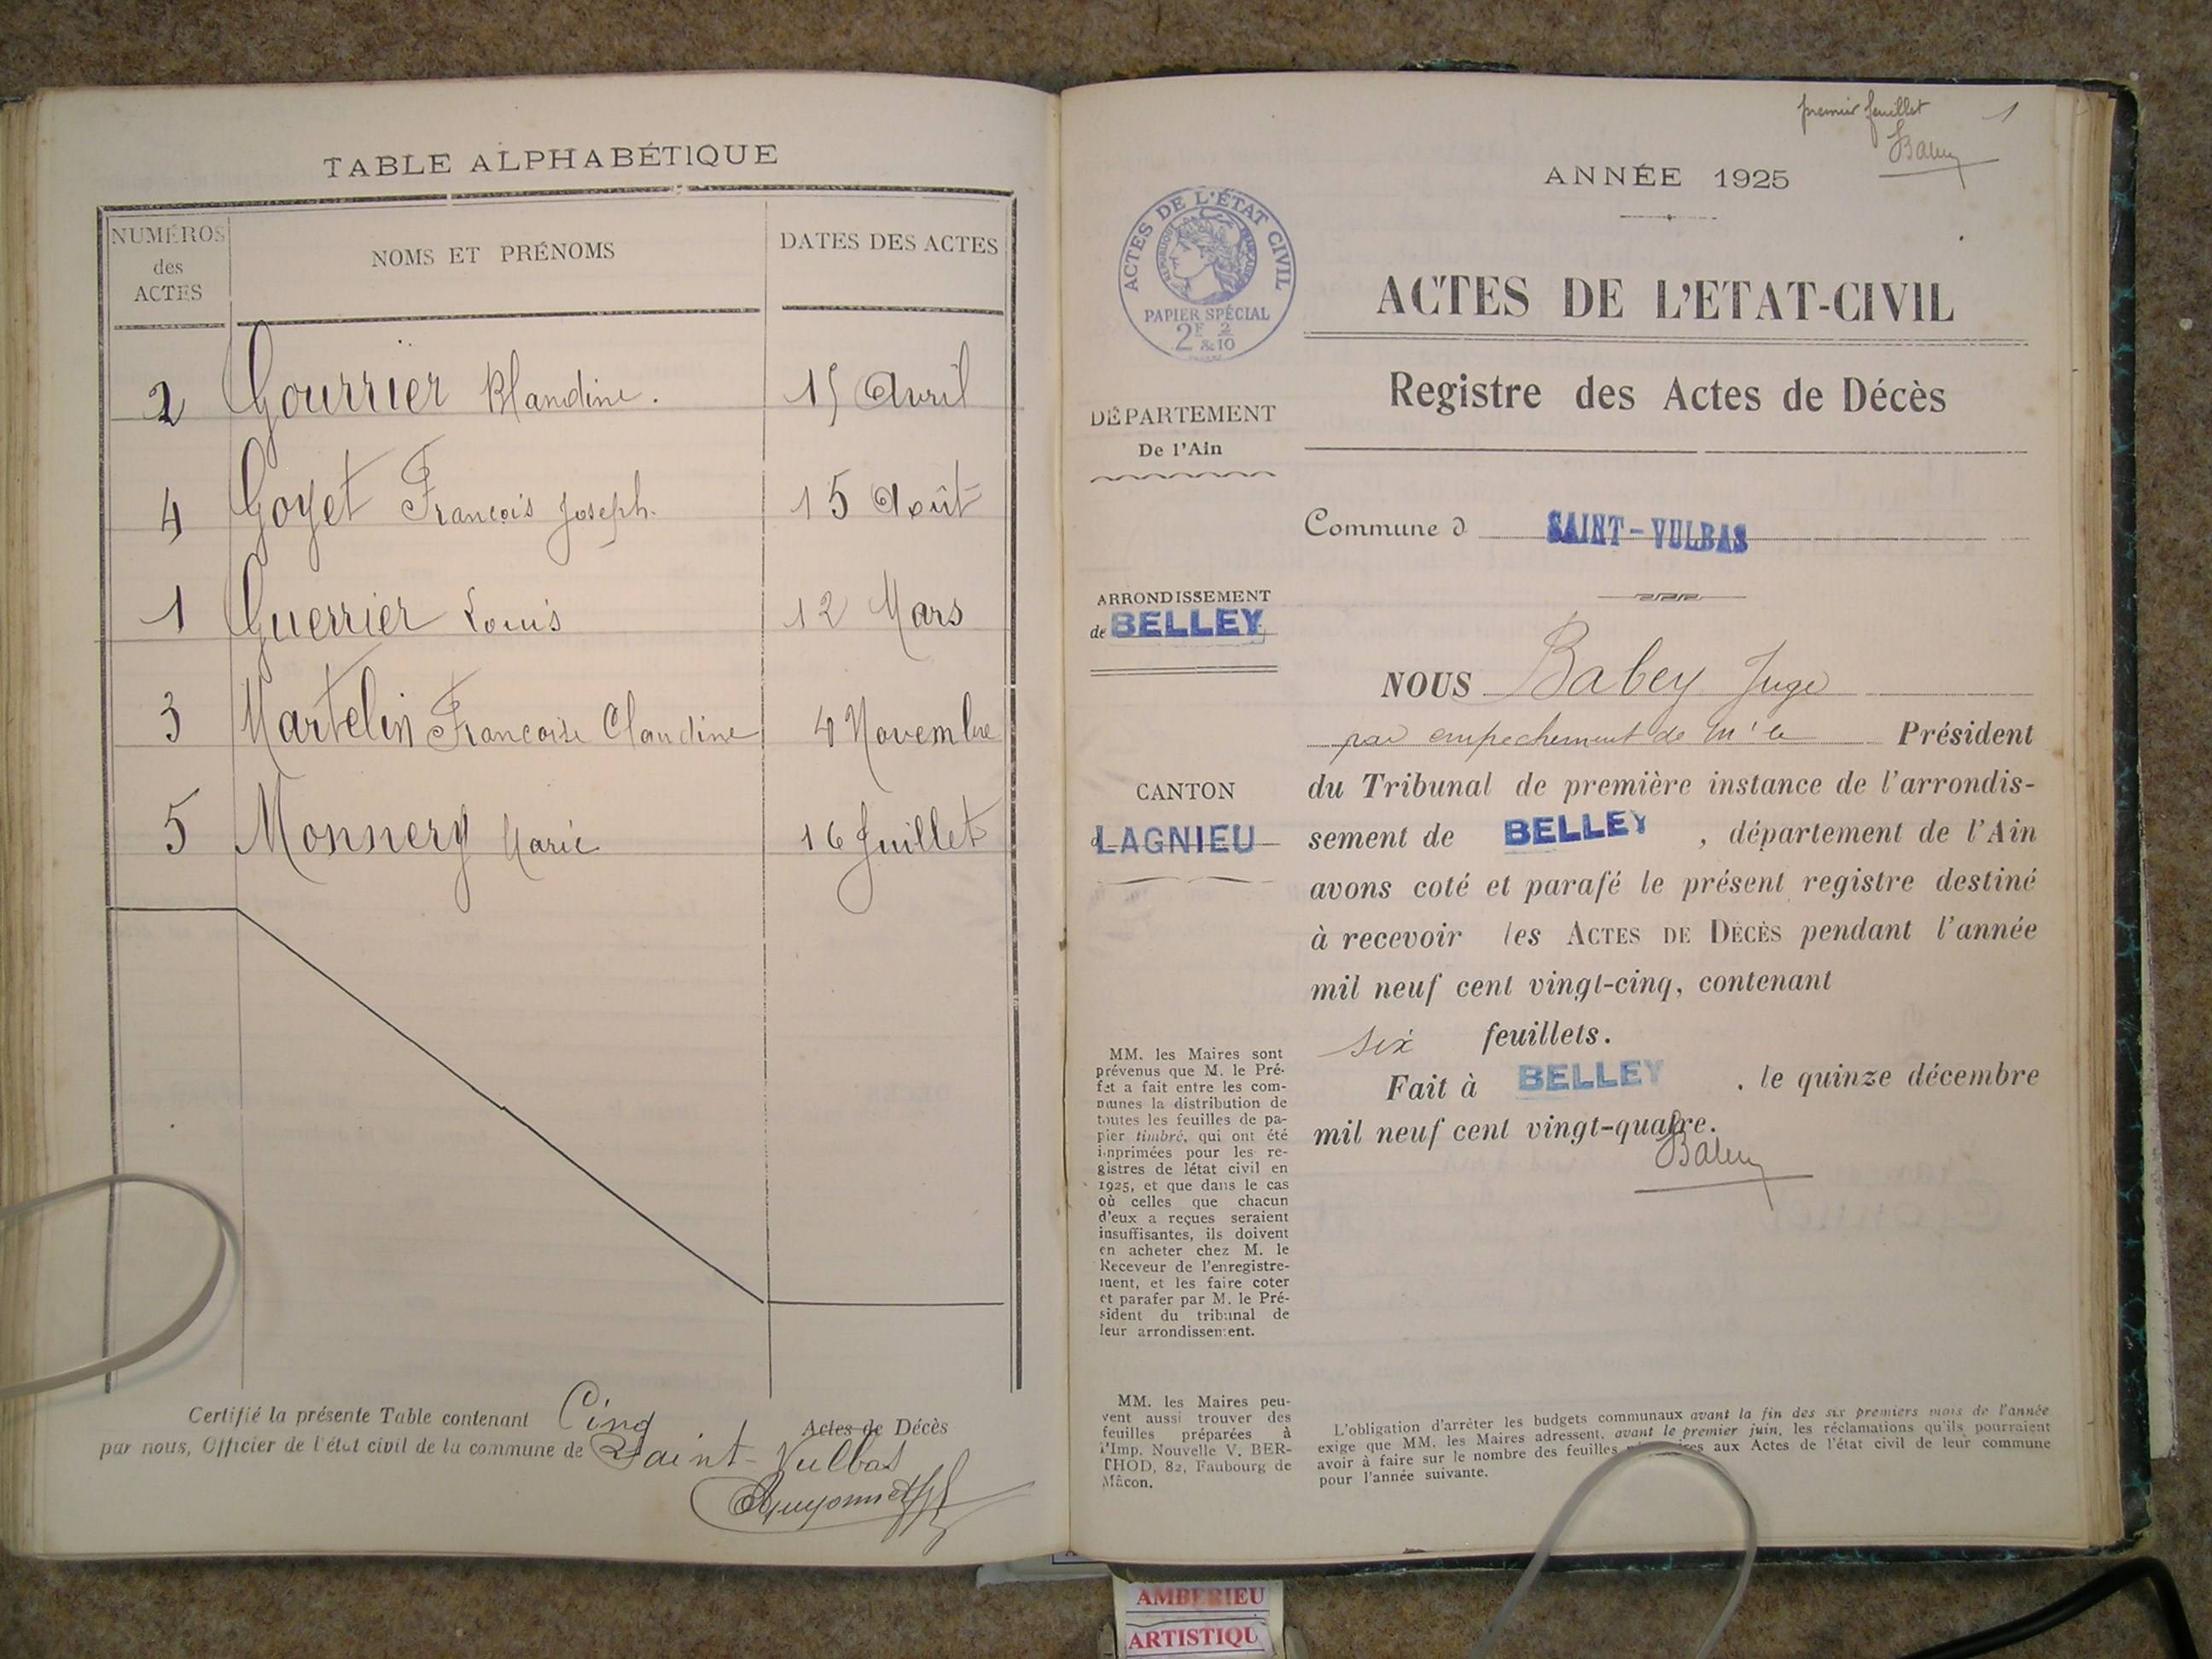 TABLE ALPHABÉTIQUE
NUMÉROS
des
ACTES
NOMS ET PRÉNOMS
DATES DES ACTES
2 Gourrier Blandine. 15 Avril
4 Goyet François Joseph. 15 Août
1 Guerrier Louis 12 Mars
3 Martelin Francoise Claudine 4 Novembre
5 Monnery Marie 16 Juillet
Certifié la présente Table contenant Cinq Actes de Décès
par nous, Officier de l'état civil de la commune de Saint-Vulbas
premier feuillet 1
Babey
ANNÉE 1925
ACTES DE L'ÉTAT CIVIL
RÉPUBLIQUE FRANÇAISE
PAPIER SPÉCIAL
2F 2
&10
ACTES DE L'ETAT-CIVIL
Registre des Actes de Décès
DÉPARTEMENT
De l'Ain
Commune d SAINT-VULBAS
ARRONDISSEMENT
de BELLEY
CANTON
d LAGNIEU
NOUS Babey Juge
par empechement de Mr le Président
du Tribunal de première instance de l'arrondis-
sement de BELLEY, département de l'Ain
avons coté et parafé le présent registre destiné
à recevoir les ACTES DE DÉCÈS pendant l'année
mil neuf cent vingt-cinq, contenant
six feuillets.
Fait à BELLEY. le quinze décembre
mil neuf cent vingt-quatre.
Babey
MM. les Maires sont
prévenus que M. le Pré-
fet a fait entre les com-
munes la distribution de
toutes les feuilles de pa-
pier timbré, qui ont été
imprimées pour les re-
gistres de létat civil en
1925, et que dans le cas
où celles que chacun
d'eux a reçues seraient
insuffisantes, ils doivent
en acheter chez M. le
Receveur de l'enregistre-
ment, et les faire coter
et parafer par M. le Pré-
sident du tribunal de
leur arrondissement.
MM. les Maires peu-
vent aussi trouver des
feuilles préparées à
l'Imp. Nouvelle V. BER-
THOD, 82, Faubourg de
Mâcon.
L'obligation d'arrêter les budgets communaux avant la fin des six premiers mois de l'année
exige que MM. les Maires adressent, avant le premier juin, les réclamations qu'ils pourraient
avoir à faire sur le nombre des feuilles aux Actes de l'état civil de leur commune
pour l'année suivante.
AMBERIEU
ARTISTIQU